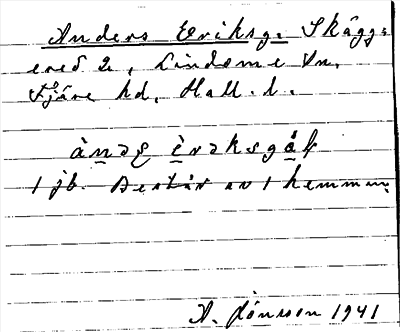 Anders Eriksg. Skägg=
ered 2, Lindome sn,
Fjäre hd, Hall. l.
1 jb. Består av 1 hemman.
A. Jönsson 1941